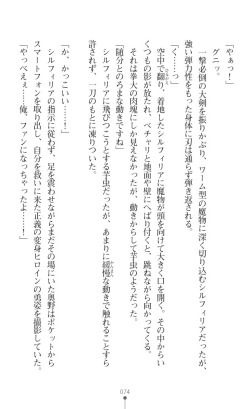 「やぁっ！」
グニッ。
　一撃必倒の大剣を振りかぶり、ワーム型の魔物に深く切り込むシルフィリアだったが、
強い弾力性をもった身体に刃は通らず弾き返される。
「く……っ」
　空中で翻り、着地したシルフィリアに魔物が頭を向けて大きく口を開く。その中からい
くつもの影が放たれ、ベチャリと地面や壁にへばり付くと、跳ねながら向かってくる。
　それは拳大の肉塊にしか見えなかったが、動きからして芋虫のようだった。
「随分とのろまな動きですね」
　シルフィリアに飛びつこうとする芋虫だったが、あまりに緩慢な動きで触れることすら
許されず、一刀のもとに凍りついた。
「か、かっこいい……！」
　シルフィリアの指示に従わず、足を震わせながらまだその場にいた奥野はポケットから
スマートフォンを取り出し、自分を救いに来た正義の変身ヒロインの勇姿を撮影していた。
「やっべえぇ……俺、ファンになっちゃったよ……！」
074